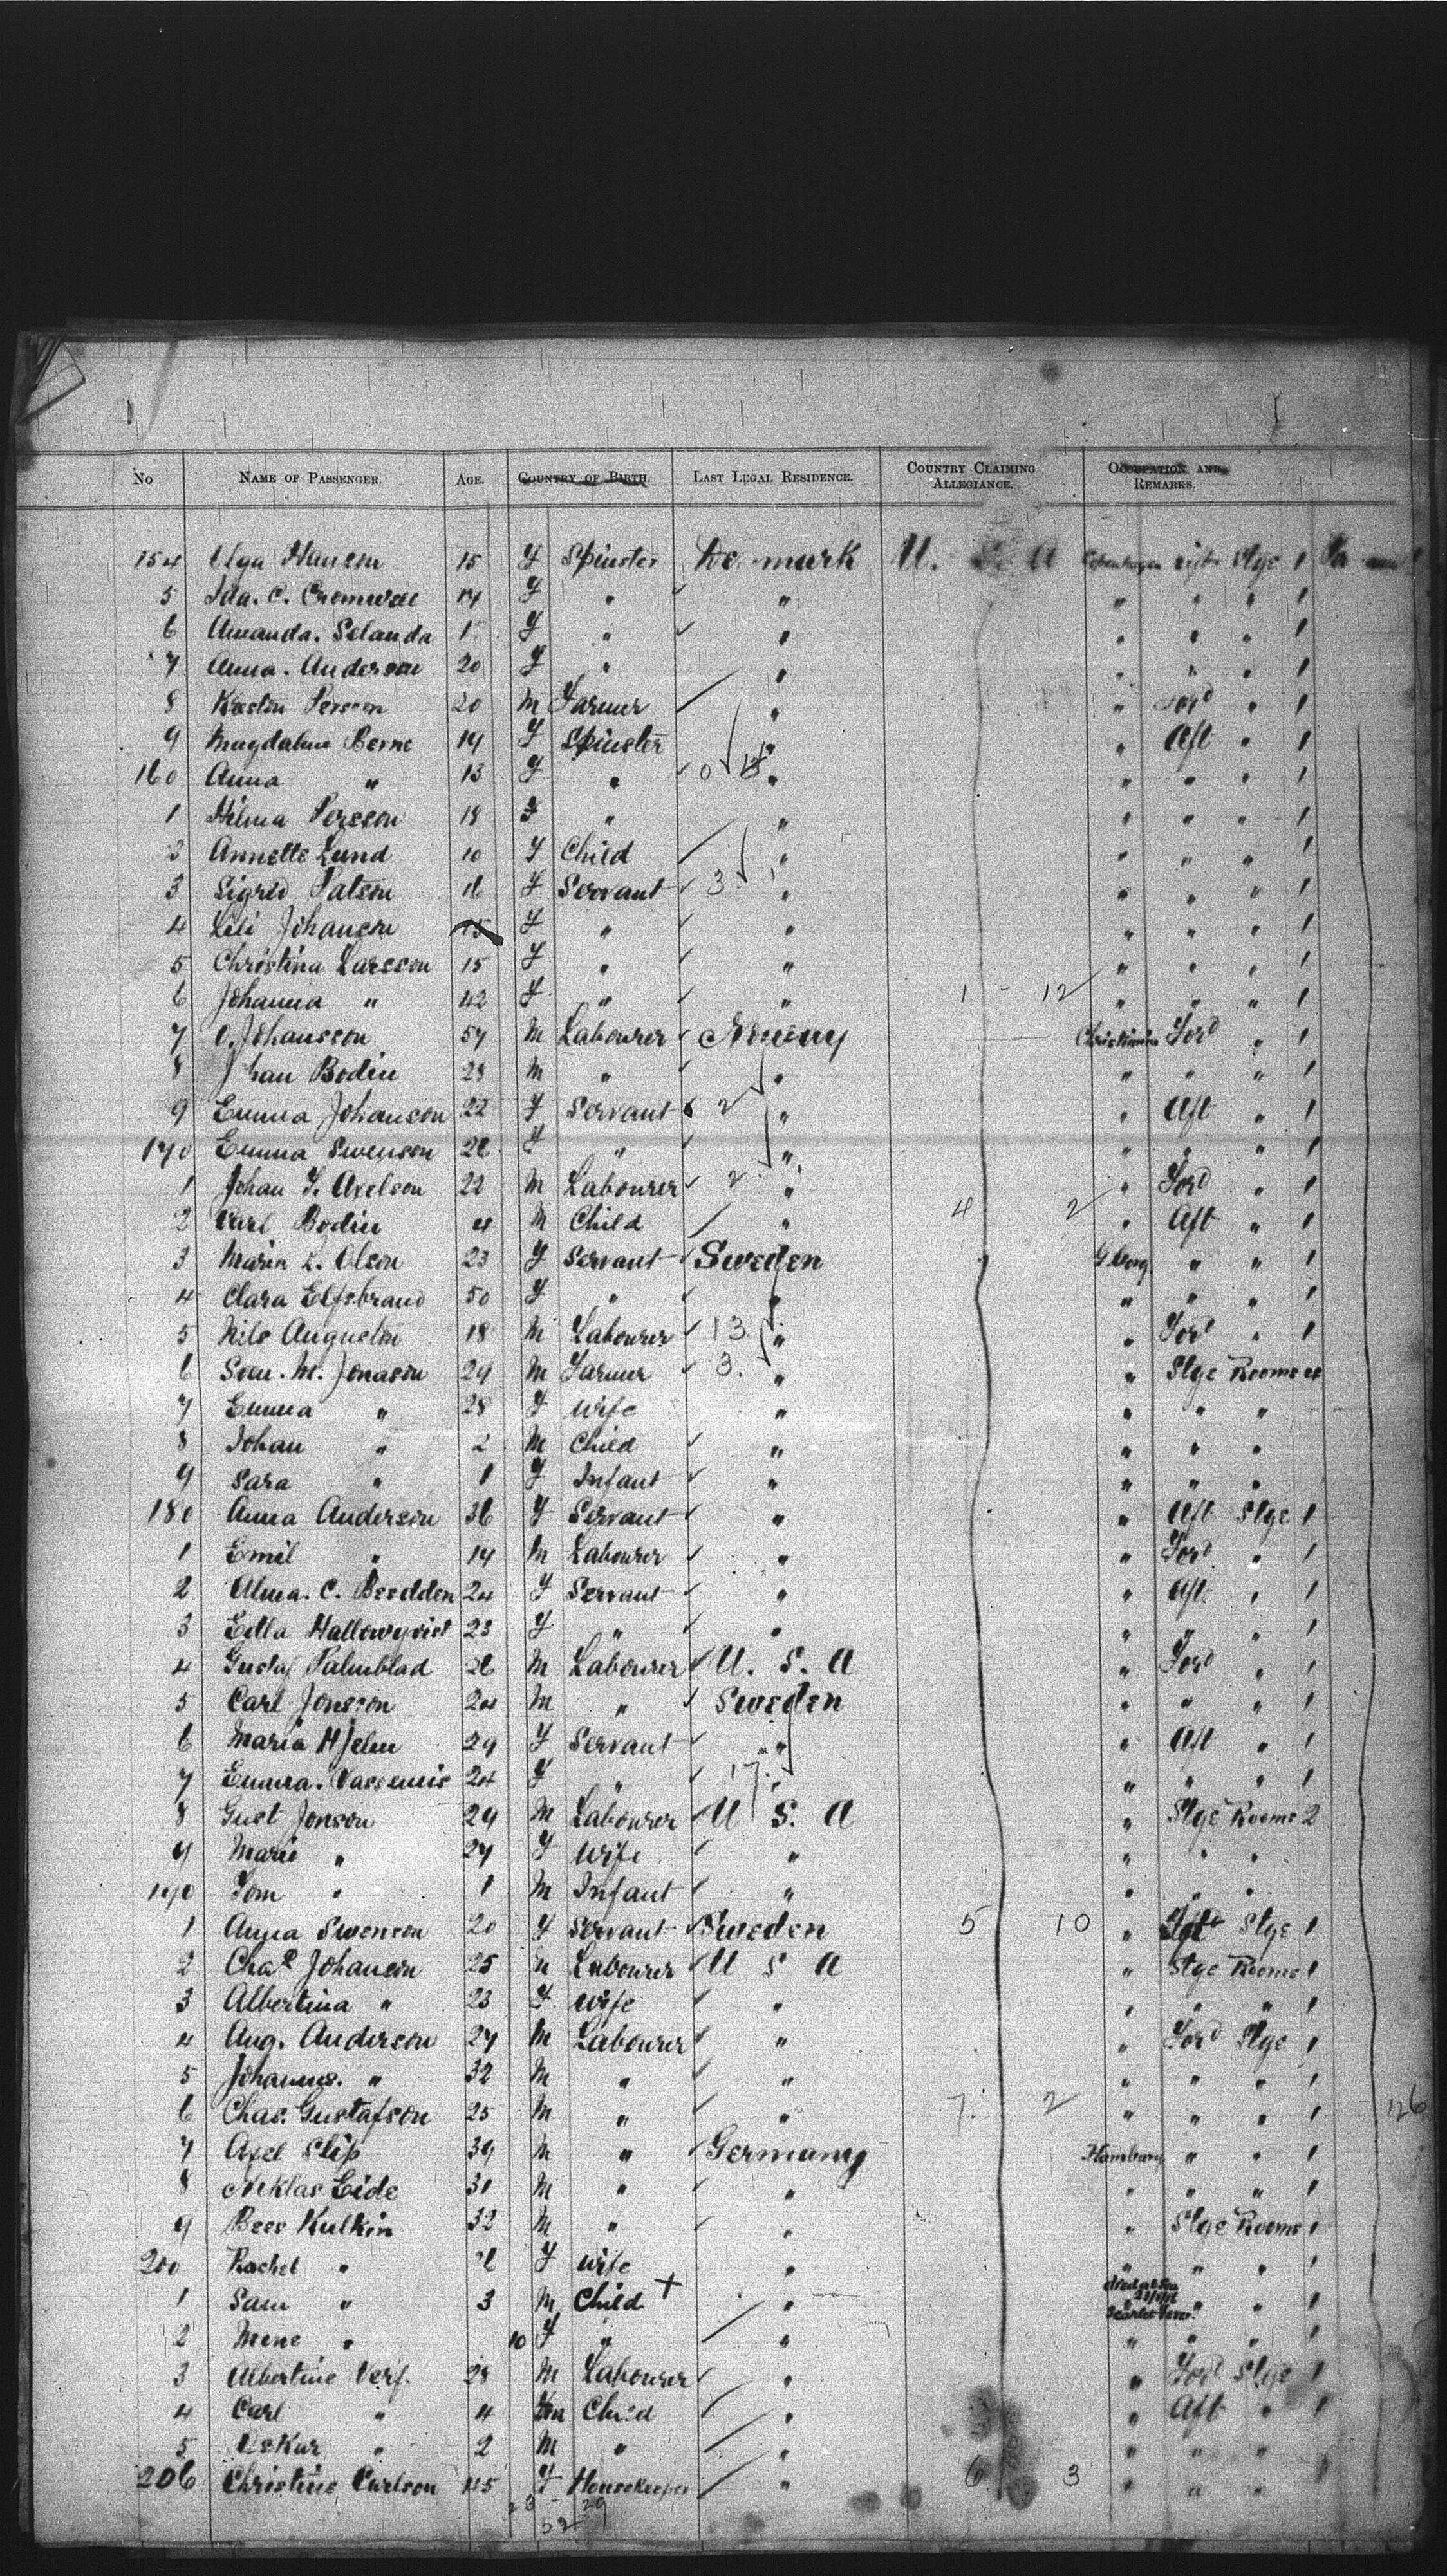 No NAME OF PASSENGER. AGE. COUNTRY OF BIRTH. LAST LEGAL RESIDENCE. COUNTRY CLAIMING ALLEGIANCE. OCCUPATION AND REMARKS.
154 Olga Hanson 15 F Spinster U. S. A Copenhagen Stge 1
5 Ida. C. 14 F " " " " " 1
6 Amanda. Selanda F " " " " " 1
7 Anna. Anderson 20 F " " " " " 1
8 Kristin Persson 20 M Farmer " " Ford " 1
9 Magdalene Berne 14 F Spinster " " Aft " 1
160 Anna " 13 F " " " " " 1
1 Hilma Persson 18 F " " " " " 1
2 Annette Lund 10 F Child " " " " 1
3 Sigrid Palson 16 F Servant 3 " " " " 1
4 Lili Johanson 15 F " " " " " 1
5 Christina Larsson 15 F " " " " " 1
6 Johanna " 42 F " " 1 - 12 " " " 1
7 O. Johansson 54 M Labourer Norway Christiania Ford " 1
8 Johan Bodin 28 M " " " " " 1
9 Emma Johanson 22 F Servant 2 " " Aft " 1
170 Emma Swenson 26 F " " " " " 1
1 Johan F. Axelson 22 M Labourer 2 " " Ford " 1
2 Carl Bodin 4 M Child " 4 2 " Aft " 1
3 Maria L. Olson 23 F Servant Sweden Gborg " " 1
4 Clara Elfsbrand 50 F " " " " " 1
5 Nils 18 M Labourer 13 " " Ford " 1
6 Sven. M. Jonason 29 M Farmer 3. " " Stge Rooms
7 Emma " 28 F Wife " " " "
8 Johan " 2 M Child " " " "
9 Sara " 1 F Infant " " " "
180 Anna Anderson 36 F Servant " " Aft Stge 1
1 Emil " 14 M Labourer " " Ford " 1
2 Alma. C. 24 F Servant " " Aft " 1
3 Edla 23 F " " " " " 1
4 Gustaf Palmblad 26 M Labourer U. S. A " Ford " 1
5 Carl Jonsson 24 M " Sweden " " " 1
6 Maria Hjelm 29 F Servant " " Aft " 1
7 Emma. 24 F " 17. " " " " 1
8 Gust Jonson 29 M Labourer U S. A " Stge Rooms 2
9 Marie " 27 F Wife " " " "
190 Tom " 1 M Infant " " " "
1 Anna Swenson 20 F Servant Sweden 5 10 " Stge 1
2 Chas Johanson 25 M Labourer U S A " Stge Rooms 1
3 Albertina " 23 F Wife " " " " 1
4 Aug. Anderson 27 M Labourer " " Ford Stge 1
5 Johannes. " 32 M " " " " " 1
6 Chas. Gustafson 25 M " " 7. 2 " " " 1 126
7 Axel Slip 39 M " Germany Hamburg " " 1
8 Neklas Eide 31 M " " " " " 1
9 Bees Kulkin 32 M " " " Stge Rooms 1
200 Rachel " F Wife " " " " 1
1 Sam " 3 M Child + " Died at Sea Scarlet Fever " " 1
2 Mene " 10 F " " " " " 1
3 Albertine Verf. 28 M Labourer " " Ford Stge 1
4 Carl " 4 M Child " " Aft " 1
5 Oskar " 2 M " " " " "
206 Christine Carlson 45 F Housekeeper " 6 3 " " "
23 - 29
52